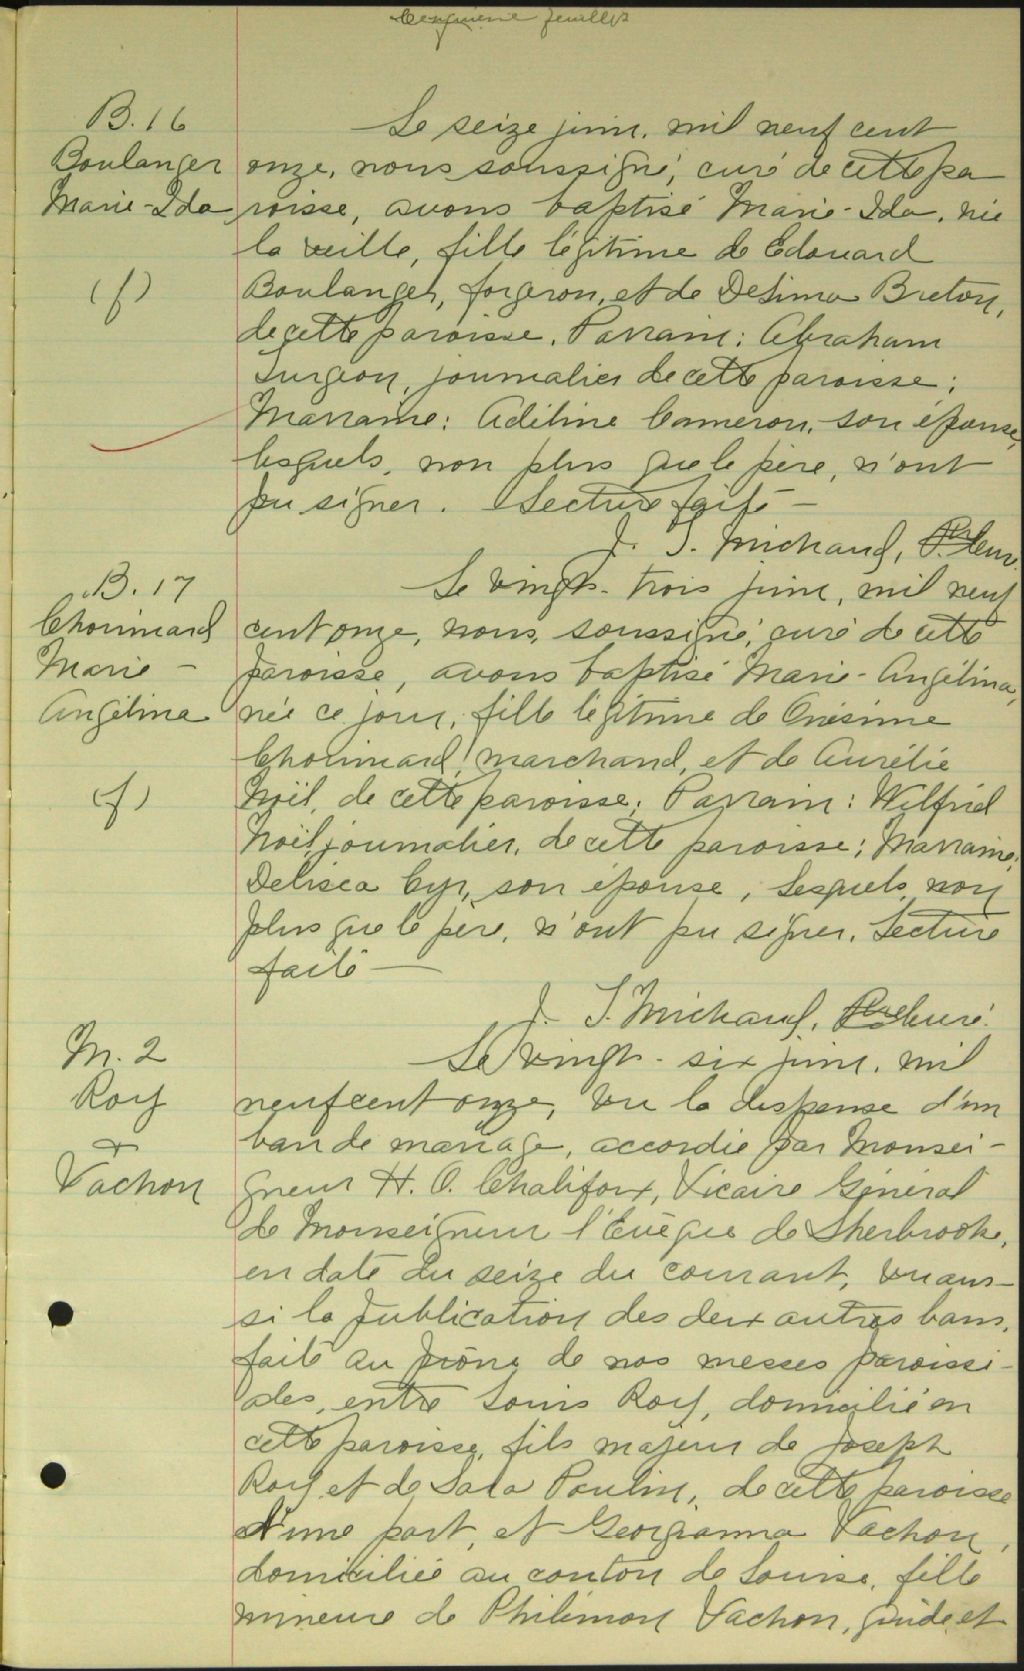 Cinquième feuillet
B. 16
Boulanger
Marie-Ida
(f)
Le seize juin, mil neuf cent
onze, nous soussigné, curé de cette pa
roisse, avons baptisé Marie-Ida, née
la veille, fille légitime de Edouard
Boulanger, forgeron, et de Delima Breton,
de cette paroisse. Parrain: Abraham
Surgeon, journalier de cette paroisse;
Marraine: Adéline Cameron, son épouse,
lesquels, non plus que le père, n'ont
pu signer. Lecture faite —
J. S. Michaud, Ptre Cur.
B. 17
Chouinard
Marie-
Angélina
(f)
Le vingt-trois juin, mil neuf
cent onze, nous, soussigné, curé de cette
paroisse, avons baptisé Marie-Angélina,
née ce jour, fille légitime de Onésime
Chouinard, marchand, et de Aurélie
Noël, de cette paroisse; Parrain: Wilfrid
Noël, journalier, de cette paroisse; Marraine:
Delisca Cyr, son épouse, lesquels, non
plus que le père, n'ont pu signer. Lecture
faite —
J. S. Michaud, Ptre Curé.
M. 2
Roy
&
Vachon
Le vingt-six juin, mil
neuf cent onze, vu la dispense d'un
ban de mariage, accordée par Monsei-
gneur H. O. Chalifoux, Vicaire Général
de Monseigneur l'Evêque de Sherbrooke,
en date du seize du courant, vu aus-
si la publication des deux autres bans,
faite au prône de nos messes paroissi-
ales, entre Louis Roy, domicilié en
cette paroisse, fils majeur de Joseph
Roy et de Sara Poulin, de cette paroisse
d'une part, et Georgianna Vachon,
domiciliée au canton de Louise, fille
mineure de Philémon Vachon, guide, et